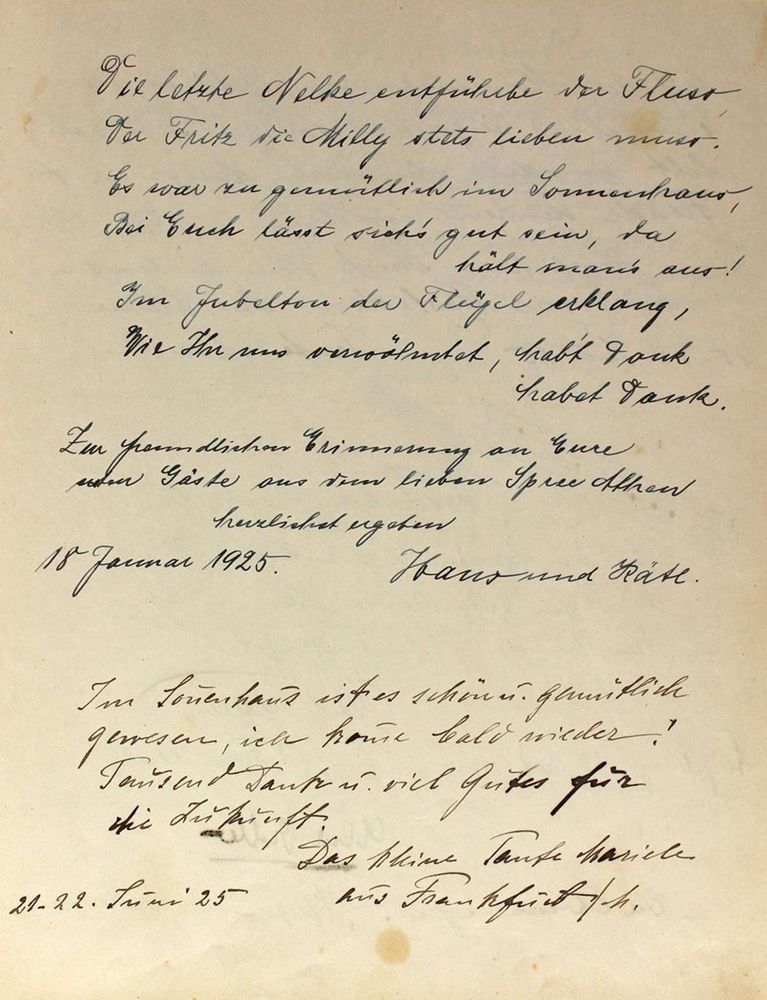 Die letzte Nelke entführte der Fluss,
Der Fritz die Milly stets lieben muss.
Es war zu gemütlich im Sonnenhaus,
Bei Euch lässt sich's gut sein, da
hält man's aus!
Im Jubelton der Flügel erklang,
Wie Ihr uns verwöhntet, habt Dank
habet Dank.
Zur freundlichen Erinnerung an Eure
Gäste aus dem lieben Spree Athen
herzlichst ergeben
18 Januar 1925. Hans und Käte.
Im Sonenhaus ist es schön u. gemütlich
gewesen, ich kome bald wieder!
Tausend Dank u. viel Gutes für
die Zukunft.
Das kleine Tante
21-22. Juni 25 aus Frankfurt /M.